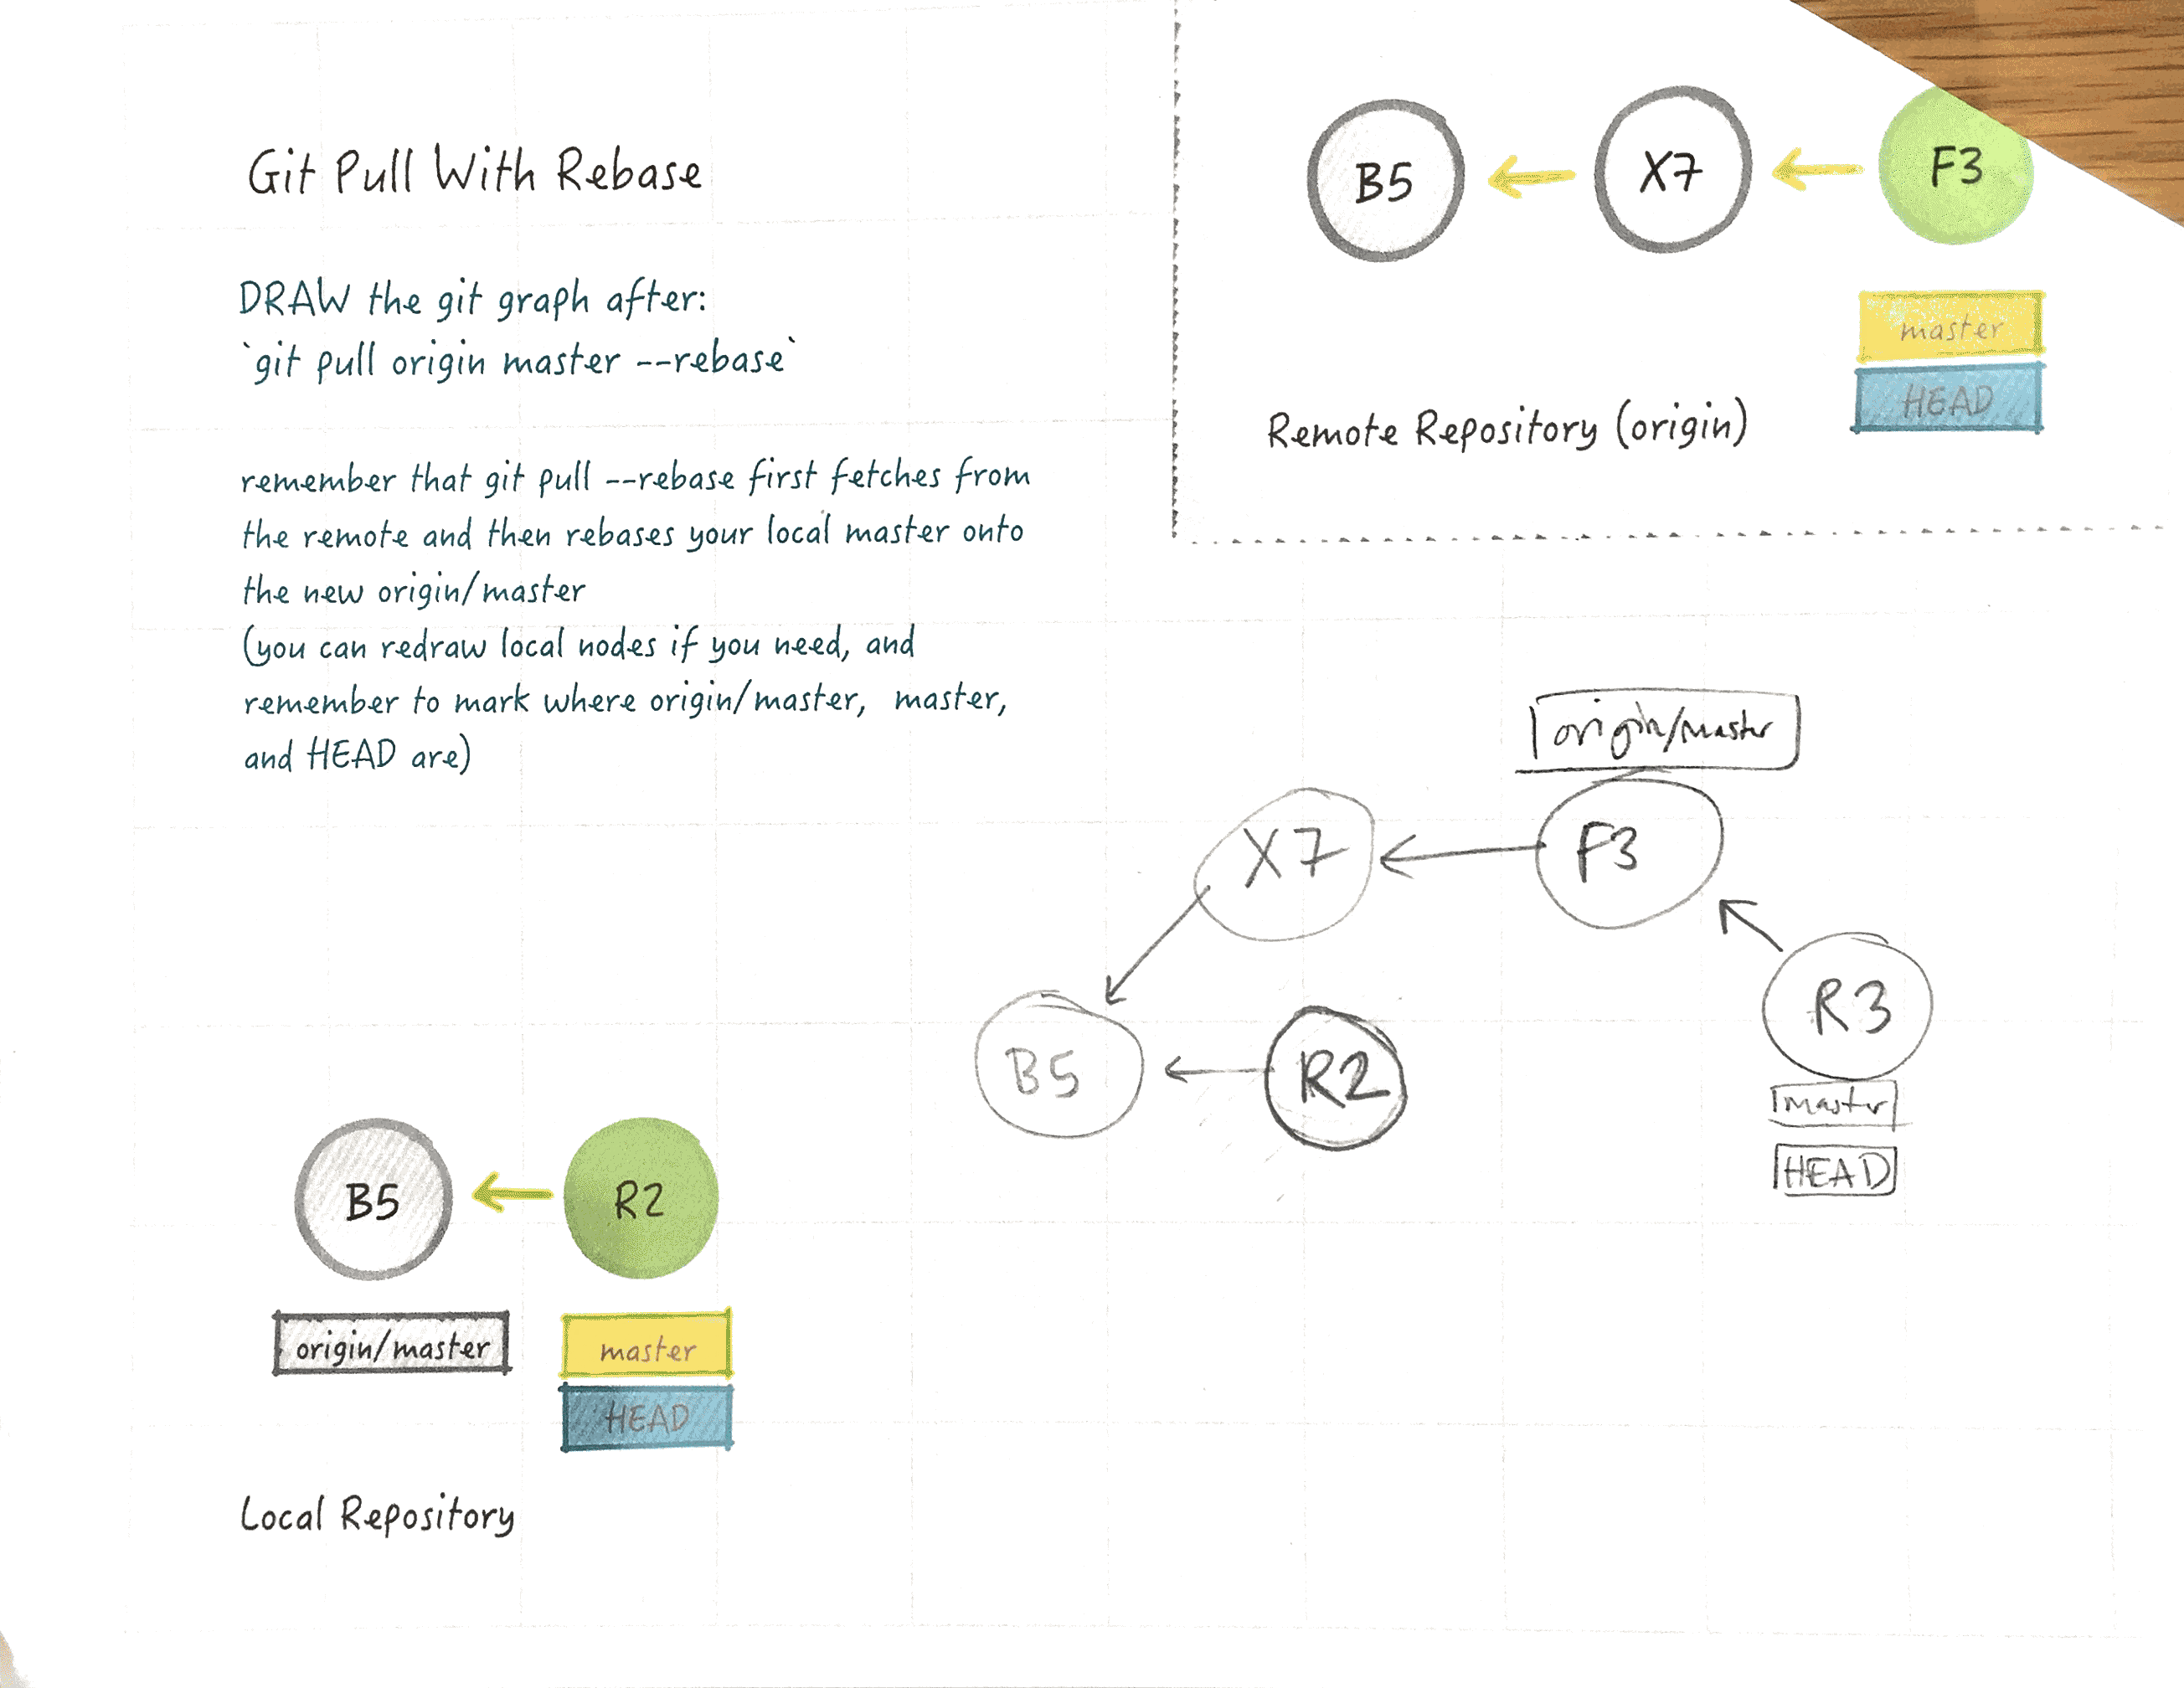 Git Pull With Rebase
DRAW the git graph after:
`git pull origin master --rebase`
remember that git pull --rebase first fetches from
the remote and then rebases your local master onto
the new origin/master
(you can redraw local nodes if you need, and
remember to mark where origin/master, master,
and HEAD are)
B5
X7
F3
master
HEAD
Remote Repository (origin)
origin/master
X7
F3
R3
B5
R2
master
HEAD
B5
R2
origin/master
master
HEAD
Local Repository